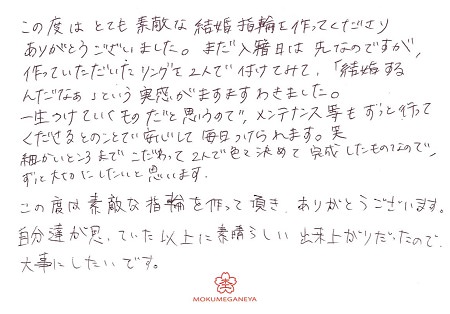 この度は とても 素敵な 結婚指輪を作ってくださり
ありがとうございました。まだ入籍日は 先なのですが、
作っていただいたリングを2人で 付けてみて、「結婚する
んだなぁ」という実感がますますわきました。
一生つけていくものだと思うので、メンテナンス等も ずっと行って
くださるとのことで安心して 毎日つけられます。
細かいところまで こだわって 2人で色々決めて 完成したものなので、
ずっと大切にしたいと思います。
この度は素敵な指輪を作って頂き、ありがとうございます。
自分達が思っていた以上に素晴らしい 出来上がりだったので
大事にしたいです。
MOKUMEGANEYA